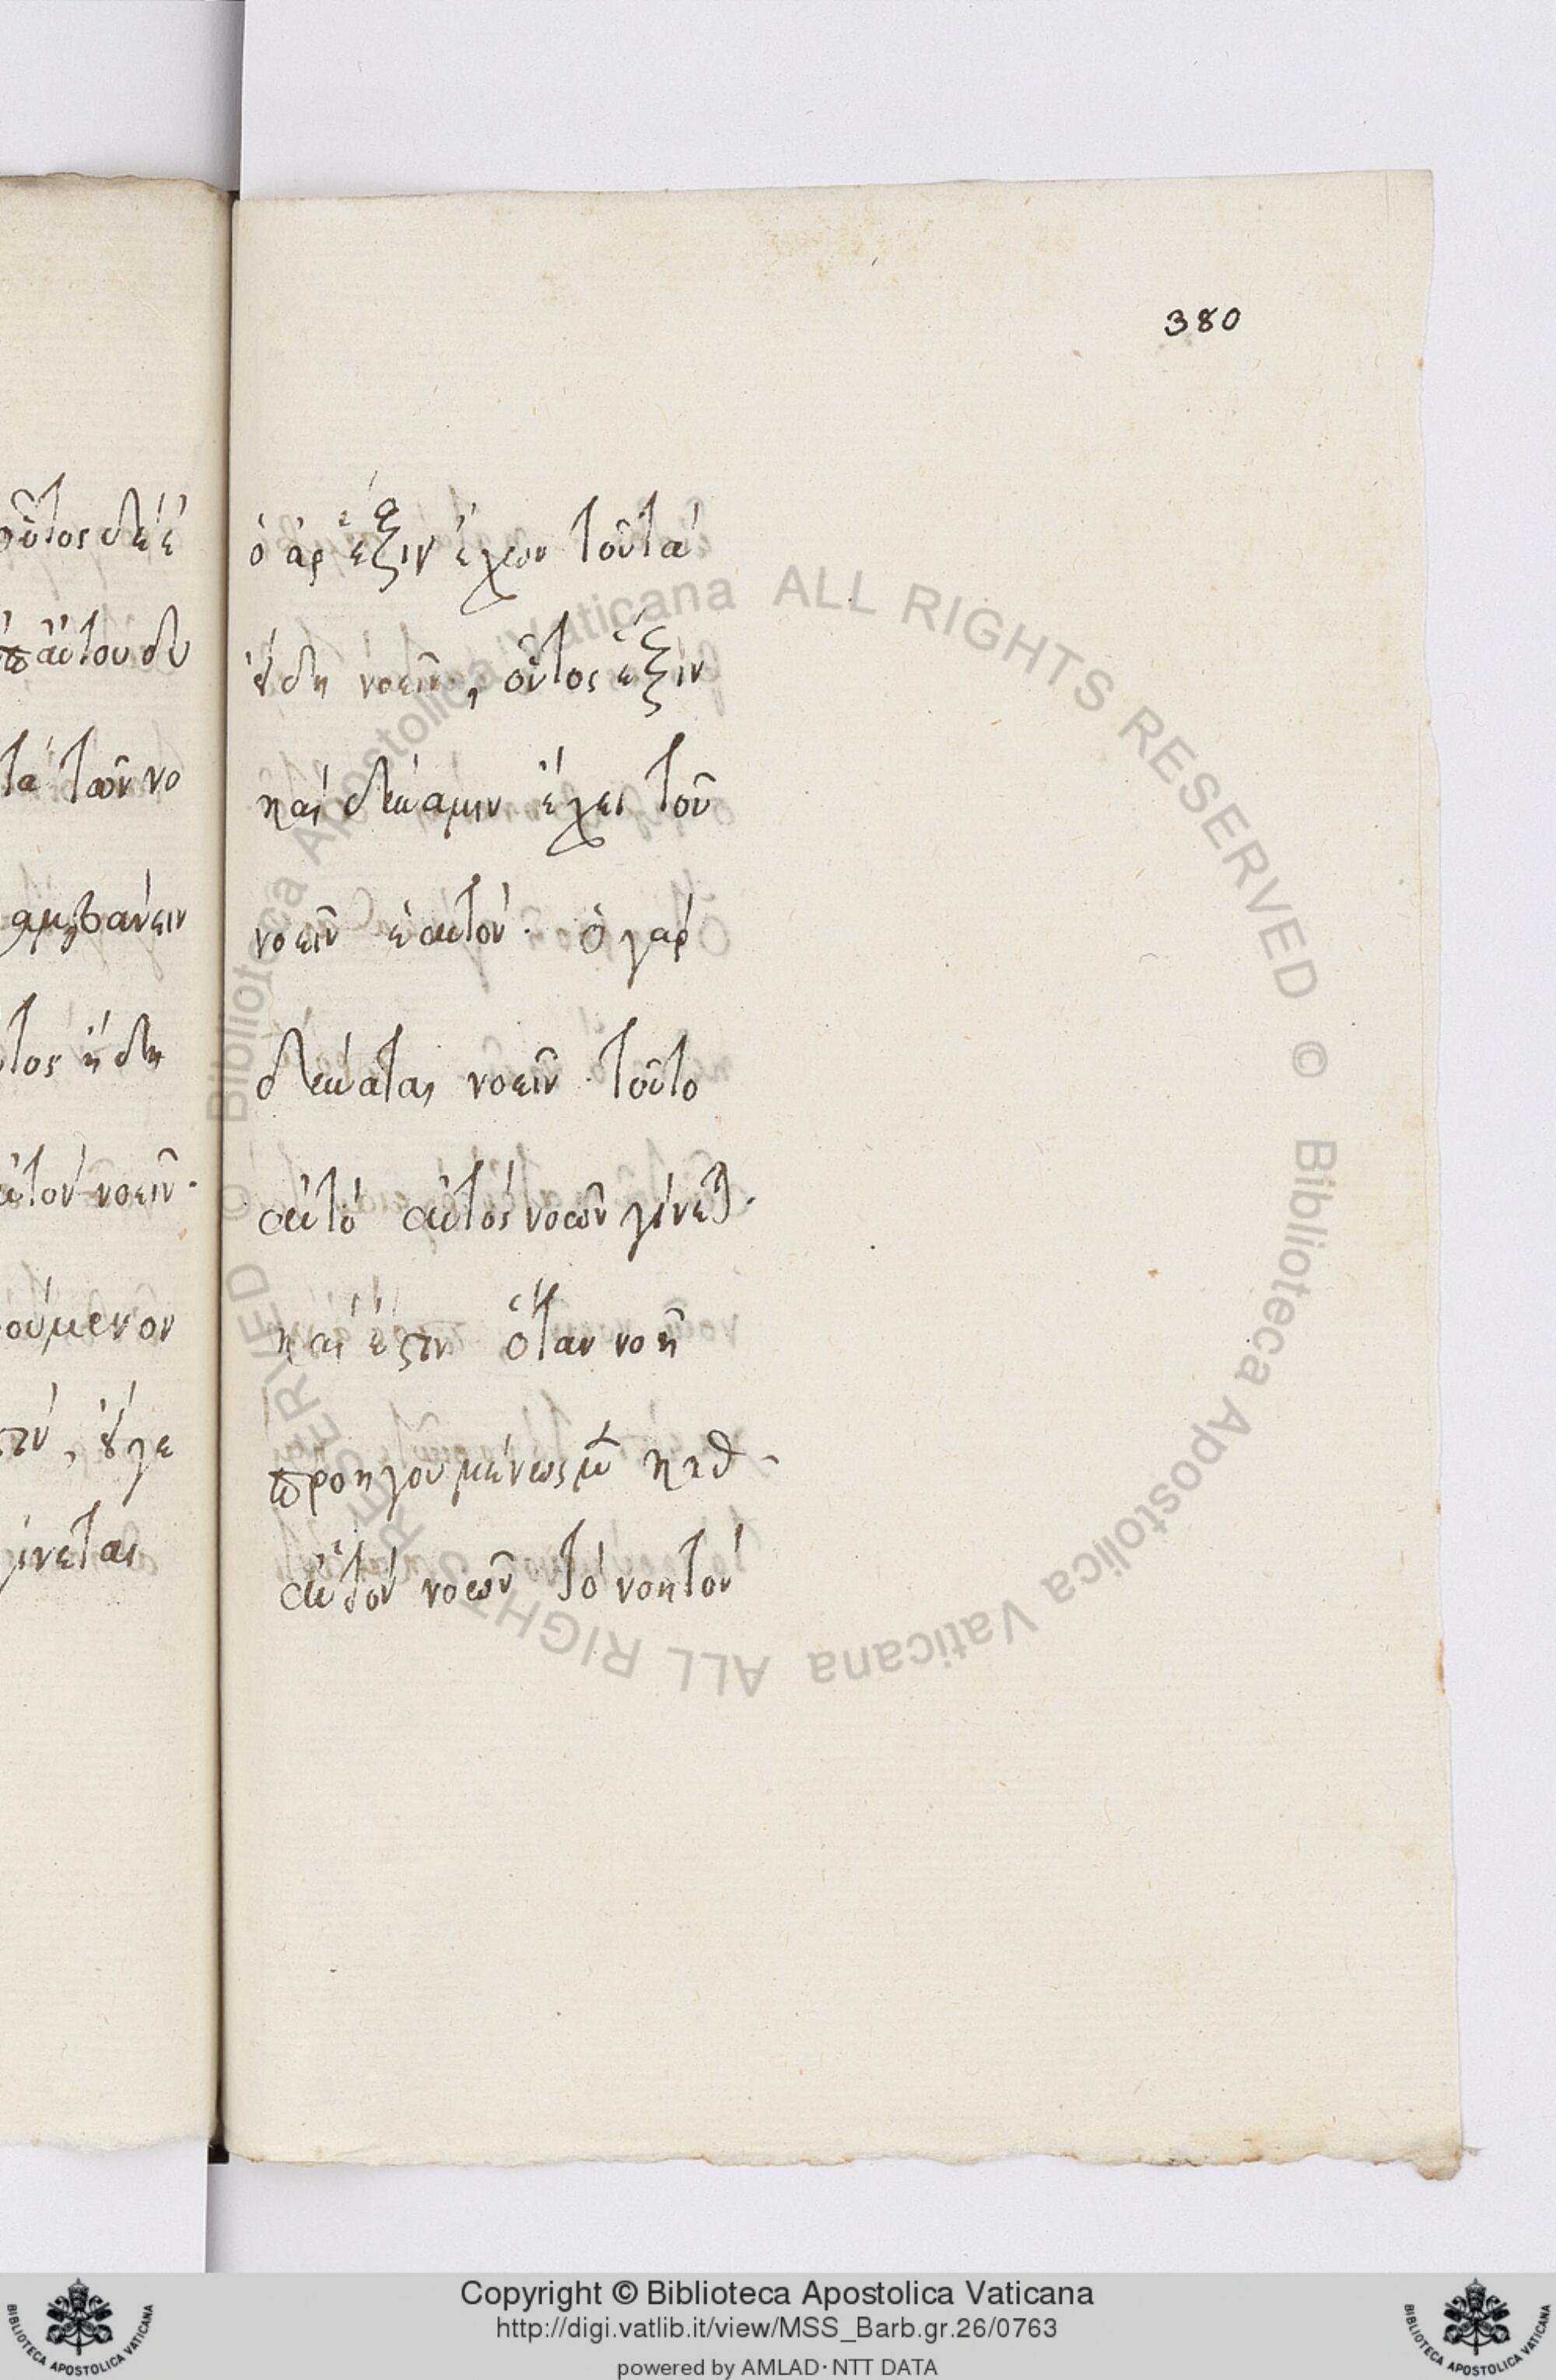 380
οὗτος δὲ ἐ
αὐτοῦ δυ
τὰ τῶν νο
αμβάνειν
τος ἤδη
αὐτὸν νοεῖν.
ούμενον
ίνεται
ὁ ἀρ ἕξιν ἔχων τοῦ τὰ
εἴδη νοεῖν, οὗτος ἕξιν
καὶ δύναμιν ἔχει τοῦ
νοεῖν ἑαυτόν. ὁ γὰρ
δύναται νοεῖν τοῦτο
αὐτὸ αὐτὸς νοῶν γίνεται.
καὶ ἔστιν ὅταν νοῇ
προηγουμένως μὲν καθ
αὑτὸν νοῶν τὸ νοητὸν
© Biblioteca Apostolica Vaticana ALL RIGHTS RESERVED © Biblioteca Apostolica Vaticana ALL RIGHTS RESERVED
BIBLIOTECA APOSTOLICA VATICANA
Copyright © Biblioteca Apostolica Vaticana
http://digi.vatlib.it/view/MSS_Barb.gr.26/0763
powered by AMLAD·NTT DATA
BIBLIOTECA APOSTOLICA VATICANA